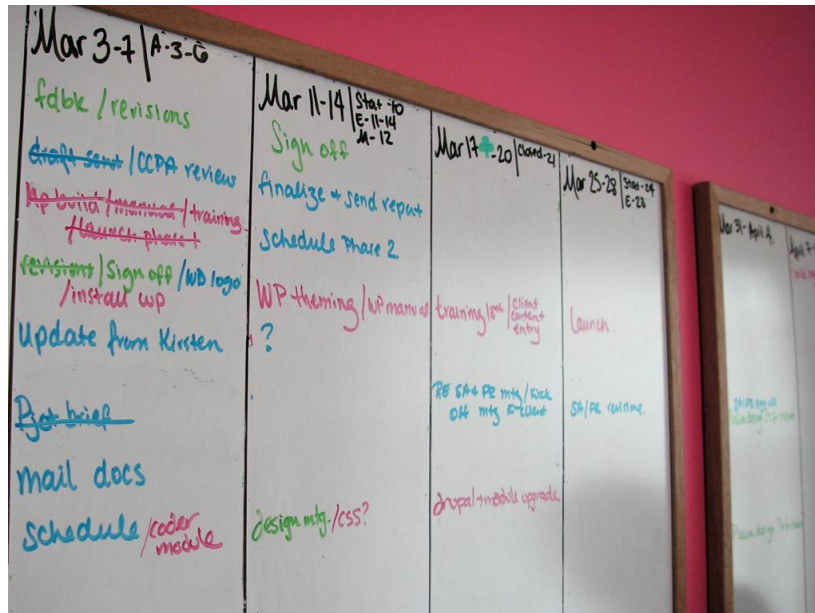 Mar 3-7 | A-3-6
fdbk / revisions
draft sent / CCPA review
wp build / manual / training
/ launch phase 1
revisions / Sign off / WD logo
/ install wp
update from Kirsten
Pjct brief
mail docs
schedule / coder
module
Mar 11-14 | Stat-10
E-11-14
A-12
Sign off
finalize + send report
schedule Phase 2
WP theming / WP manual
?
design mtg. / CSS?
Mar 17-20 | Closed-21
training 18th / client
content
entry
RE SA + PE mtg / Kick
off mtg
drupal + module upgrade
Mar 25-28 | Stat-24
E-28
Launch
SA / PE revisions
Mar 31- April 4
April 7-